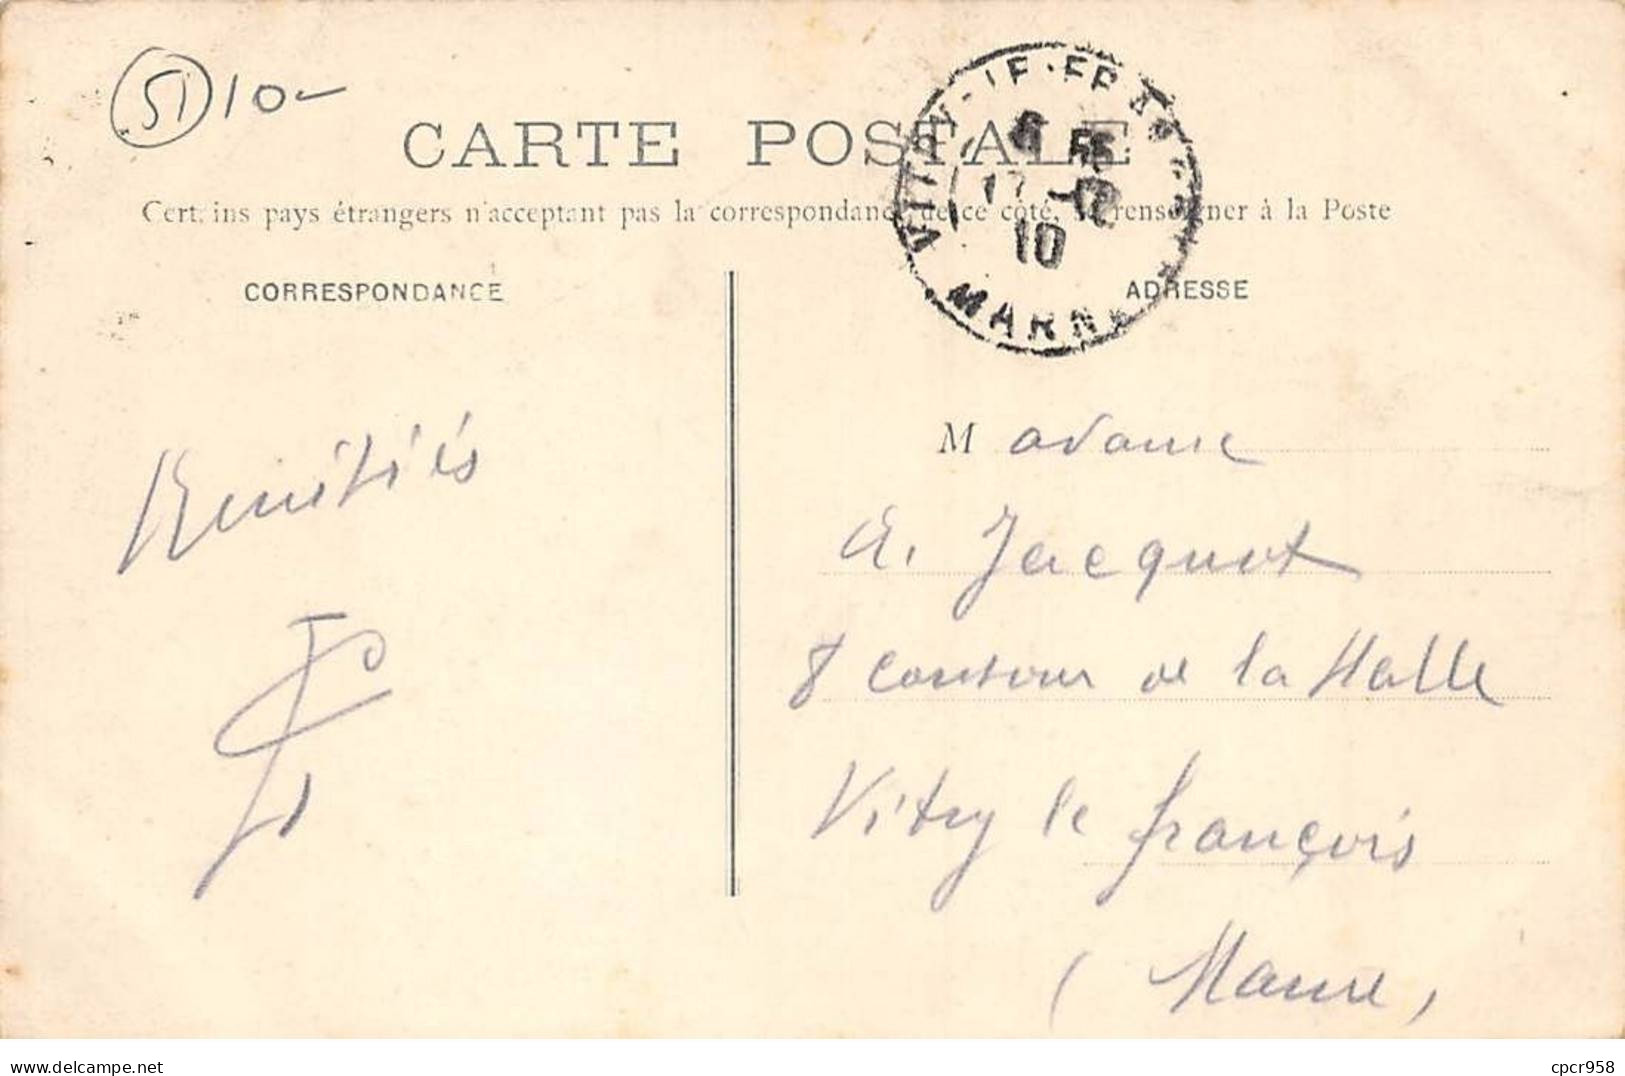 51 10-
CARTE POSTALE
Certains pays étrangers n'acceptent pas la correspondance de ce côté, se renseigner à la Poste
VITRY-LE-FRANÇOIS
17
10
MARNE
CORRESPONDANCE
ADRESSE
Amitiés
Madame
A. Jacquot
8 contour de la Halle
Vitry le françois
(Marne)
www.delcampe.net
cpcr958